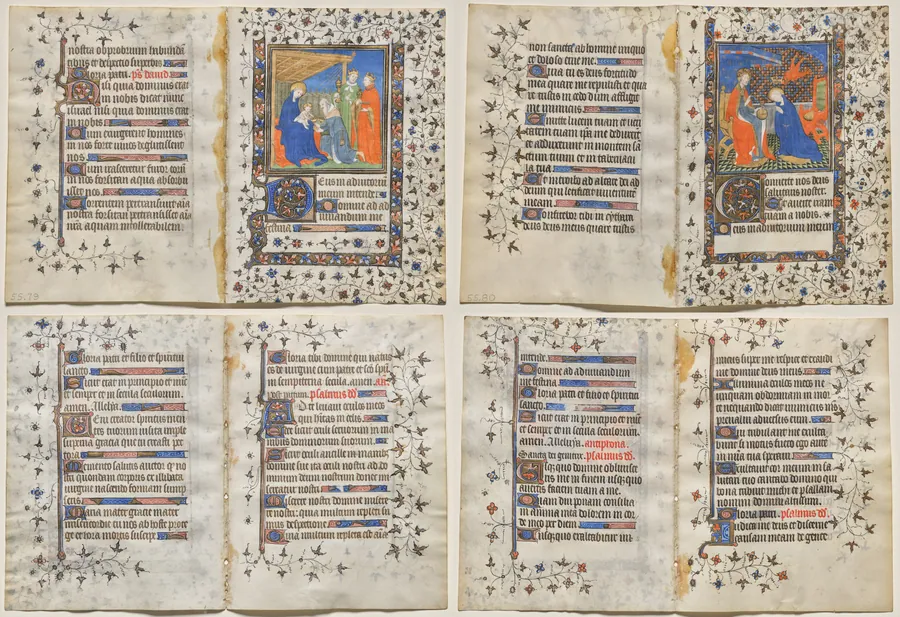 nostra obprobrium habundan
tibus et despectio superbis
Gloria patri. ps david
Nisi quia dominus erat
in nobis dicat nunc
israel nisi quia dominus erat
in nobis
Cum exurgerent homines
in nos forte vivos deglutissent
nos
Cum irasceretur furor eorum
in nos forsitan aqua absorbu
isset nos
Torrentem pertransivit aia
nostra forsitan pertransisset aia
nostra aquam intollerabilem
Deus in adiutorium
meum intende
Domine ad ad
iuvandum me
festina
55.79
non sancta ab homine iniquo
et doloso erue me
Quia tu es deus fortitudo
mea quare me repulisti et qua
re tristis incedo dum affligit
me inimicus
Emitte lucem tuam et veri
tatem tuam ipa me deduxerunt
et adduxerunt in montem san
ctum tuum et in tabernacu
la tua
Et introibo ad altare dei ad
deum qui letificat iuventutem
meam
Confitebor tibi in cythara
deus deus meus quare tristis
Converte nos deus
salutaris noster
Et averte iram
tuam a nobis
Deus in adiutorium meum
55.80
Gloria patri et filio et spiritui
sancto
Sicut erat in principio et nunc
et semper et in secula seculorum
amen. Alleluia
Veni creator spiritus men
tes tuorum visita imple
superna gracia que tu creasti pec
tora
Memento salutis auctor quod no
stri quondam corporis ex illibata
virgine nascendo formam sump
seris
Maria mater gracie mater
misericordie tu nos ab hoste prote
ge et hora mortis suscipe
Gloria tibi domine qui natus
es de virgine cum patre et sco spu
in sempiterna secula. amen. an
psalmus dd
Ad te levavi oculos meos
qui habitas in celis
Ecce sicut oculi servorum in ma
nibus dominorum suorum
Sicut oculi ancille in mani
bus domine sue ita oculi nostri ad do
minum deum nostrum donec mi
sereatur nostri
Miserere nostri domine miserere
nostri quia multum repleti su
mus despectione
Quia multum repleta est aia
intende
Domine ad adiuvandum
me festina
Gloria patri et filio et spiritui
sancto
Sicut erat in principio et nunc
et semper et in secula seculorum
amen. Alleluya. antiphona
Sancta dei genitrix. psalmus dd.
Usquequo domine oblivisce
ris me in finem usquequo
avertis faciem tuam a me
Quamdiu ponam consilia
in anima mea dolorem in cor
de meo per diem
Usquequo exaltabitur ini
micus super me respice et exaudi
me domine deus meus
Illumina oculos meos ne
unquam obdormiam in mor
te nequando dicat inimicus meus
prevalui adversus eum
Qui tribulant me exulta
bunt si motus fuero ego autem
in misericordia tua speravi
Exultavit cor meum in sa
lutari tuo cantabo domino qui
bona tribuit michi et psallam
nomini domini altissimi
Gloria patri. psalmus dd.
Iudica me deus et discerne
causam meam de gente